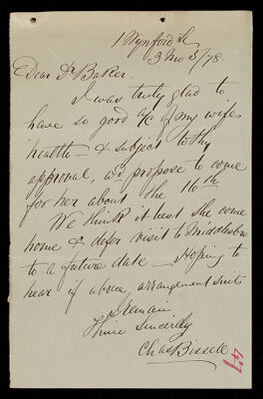 1 Wynford St
3 Mo 5/78.
Dear Dr Baker.
I was truly glad to
have so good a/c of my wifes
health – & subject to thy
approval, wd propose to come
for her about the 16th
We think it best she come
home & defer visit to Middlesbro
to a future date – Hoping to
hear if above arrangement suits
I remain
Thine Sincerely
Chas Bissell
47